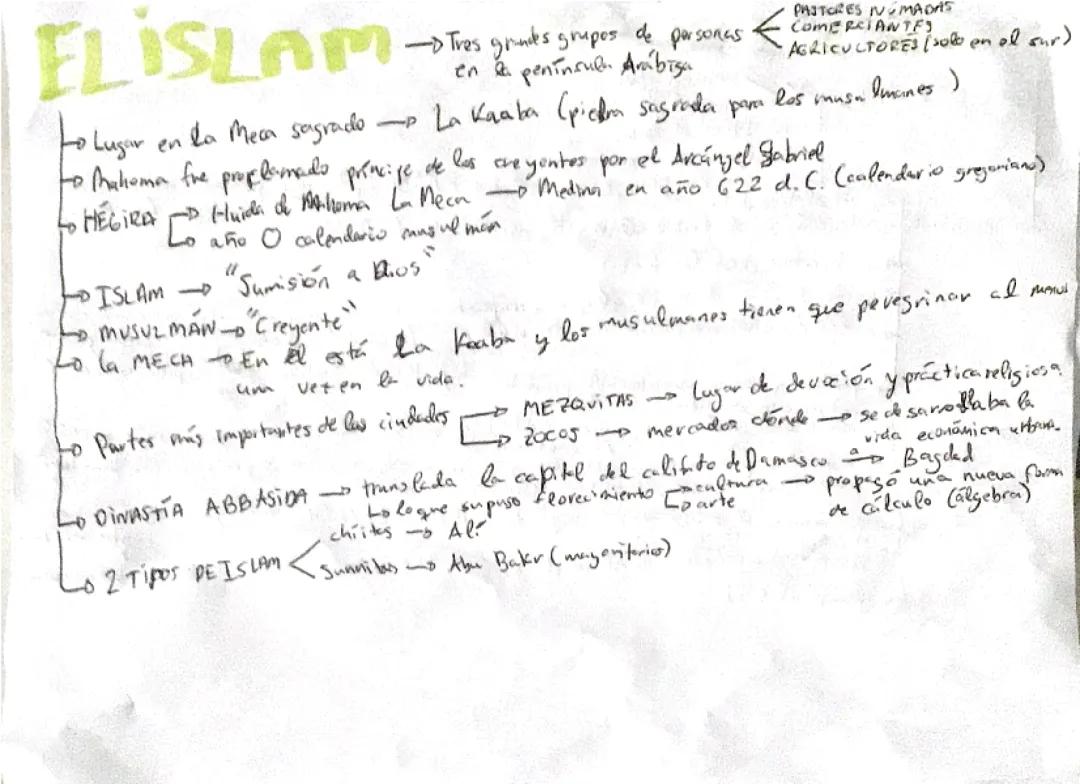 EL ISLAM → Tres grandes grupos de personas
en la península Arábiga
PASTORES NÓMADAS
COMERCIANTES
AGRICULTORES (solo en el sur)
→ Lugar en la Meca sagrado → La Kaaba (piedra sagrada para los musulmanes)
→ Mahoma fue proclamado príncipe de los creyentes por el Arcángel Gabriel
→ HÉGIRA → Huida de Mahoma La Meca → Medina en año 622 d.C. (calendario gregoriano)
→ año 0 calendario musulmán
→ ISLAM → "Sumisión a Dios"
→ MUSULMÁN → "Creyente"
→ La MECA → En él está la Kaaba y los musulmanes tienen que peregrinar al menos
una vez en la vida.
→ Partes más importantes de las ciudades → MEZQUITAS → Lugar de devoción y práctica religiosa
→ ZOCOS → mercados dónde → se desarrollaba la
vida económica urbana.
→ DINASTÍA ABBASIDA → translada la capital del califato de Damasco a → Bagdad
→ lo que supuso florecimiento → cultura → propagó una nueva forma
→ arte de cálculo (álgebra)
→ 2 TIPOS DE ISLAM
chiitas → Alí
Sunnitas → Abu Bakr (mayoritarios)